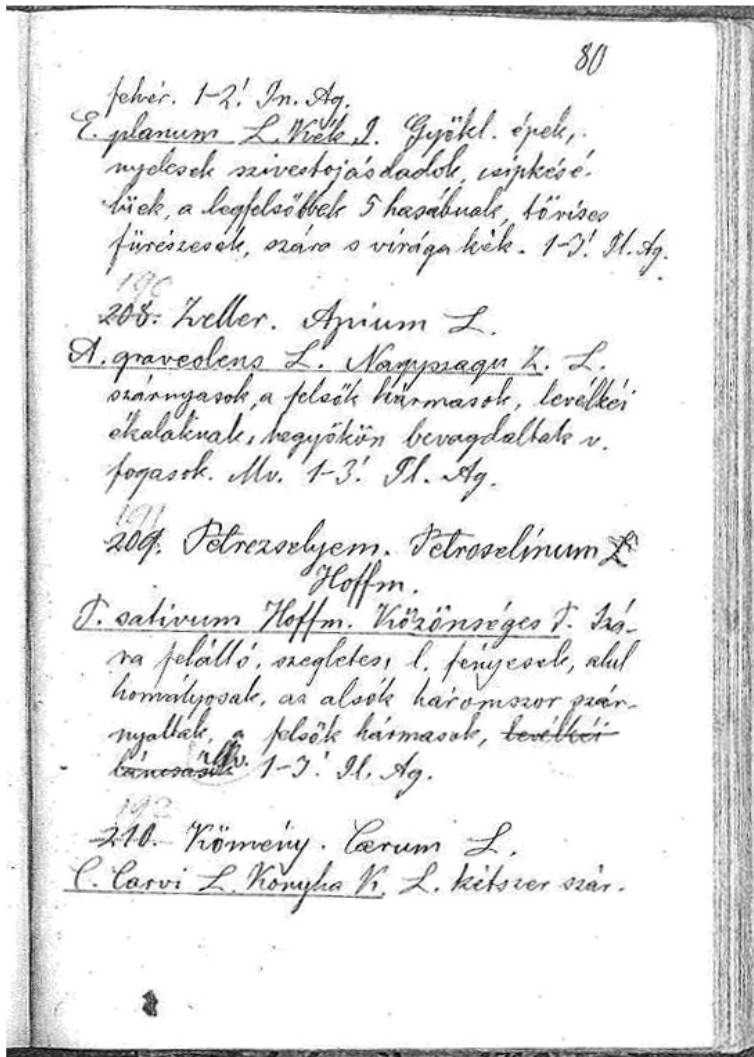 80
fehér. 1-2! Jn. Ag.
E. planum L. Kék I. Gyökl. épek,
nyelesek szivestojásdadok, csipkésé-
lüek, a legfelsőbbek 5 hasábuak, tövises
fürészesek, szára s virága kék. 1-3! Jl. Ag.
190
208. Zeller. Apium L.
A. graveolens L. Nagyszagu Z. L.
szárnyasok, a felsők hármasok, levélkéi
ékalakuak, hegyökön bevagdaltak v.
fogasok. Mv. 1-3! Jl. Ag.
191
209. Petrezselyem. Petroselinum L
Hoffm.
P. sativum Hoffm. Közönséges P. Szá-
ra felálló, szegletes, l. fényesek, alul
homályosak, az alsók háromszor szár-
nyaltak, a felsők hármasok, levélkéi
láncsásak Mv. 1-3! Jl. Ag.
192
210. Kömény. Carum L.
C. Carvi L. Konyha K. L. kétszer szár-